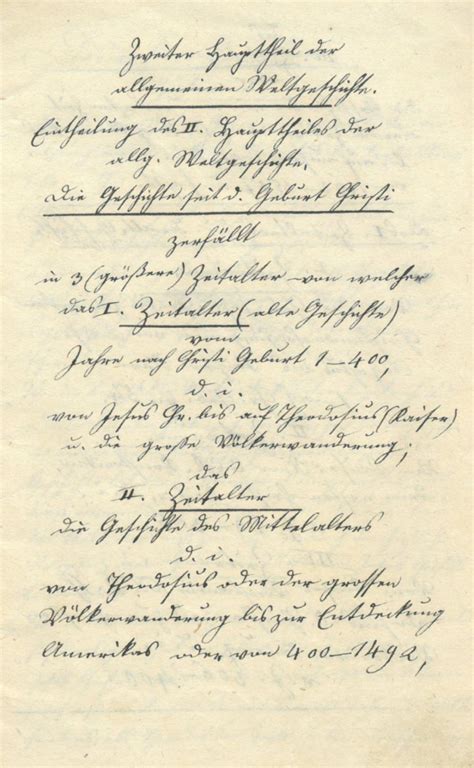 Zweiter Haupttheil der
allgemeinen Weltgeschichte.
Eintheilung des II. Haupttheiles der
allg. Weltgeschichte.
Die Geschichte seit d. Geburt Christi
zerfällt
in 3 (größere) Zeitalter von welcher
das I. Zeitalter (alte Geschichte)
vom
Jahre nach Christi Geburt 1–400,
d. i.
von Jesus Chr. bis auf Theodosius (Kaiser)
u. die grosse Völkerwanderung;
das
II. Zeitalter
die Geschichte des Mittelalters
d. i.
vom Theodosius oder der grossen
Völkerwanderung bis zur Entdeckung
Amerikas oder von 400–1492,